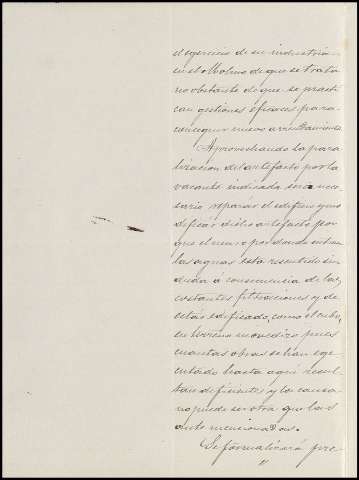 el egercicio de su industria
en el Molino de que se trata
no obstante de que se practi
can gestiones eficaces para
conseguir nuevo arrendamiento.
Aprovechando la para
lizacion del artefacto por la
vacante indicada sera nece
sario reparar el edificio y mo
dificar dicho artefacto por
que el muro por donde entran
las aguas esta resentido sin
duda á consecuencia de las
costantes filtraciones y de
estar edificado, como el cubo,
en terreno movedizo pues
cuantas obras se han ege
cutado hasta aquí resul
tan deficientes y la causa
no puede ser otra que las
ante mencionadas.
Se formalizará pre
"